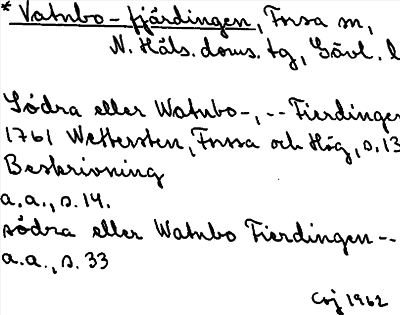 * Vatnbo-fjärdingen, Forsa sn,
N. Häls. doms. tg, Gävl. l
Södra eller Watnbo-, -- Fierdingen
1761 Wettersten, Forssa och Hög, s. 13
Beskrivning
a.a., s. 14.
södra eller Watnbo Fierdingen --
a.a., s. 33
CGJ 1962